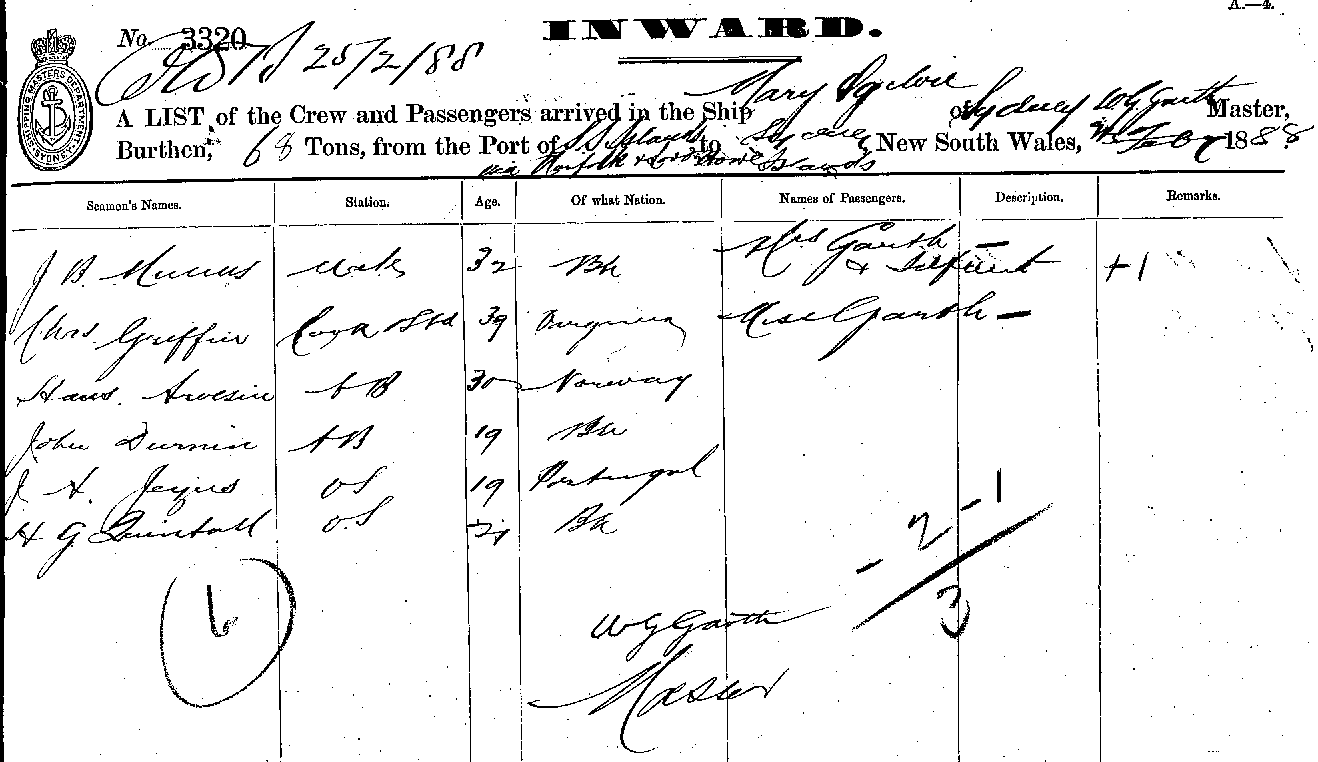 A.—4.
INWARD.
No. 3320
25/2/88
A LIST of the Crew and Passengers arrived in the Ship Mary Ogilvie of Sydney W G Garth Master,
Burthen, 68 Tons, from the Port of S. S. Islands to Sydney, New South Wales, Feby 1888
via Norfolk & Lord Howe Islands
SHIPPING MASTERS DEPARTMENT SYDNEY
Seamen's Names. Station. Age. Of what Nation. Names of Passengers. Description. Remarks.
J B Mate 32 Bh Mrs Garth —
& Infant +1
Chrs Griffin Cook Std 39 Miss Garth —
Hans AB 30 Norway
John Durnin AB 19 Bh
J. A. OS 19 Portugal
H G Quintall O.S 21 Bh
6
- 2 - 1
3
W G Garth
Master